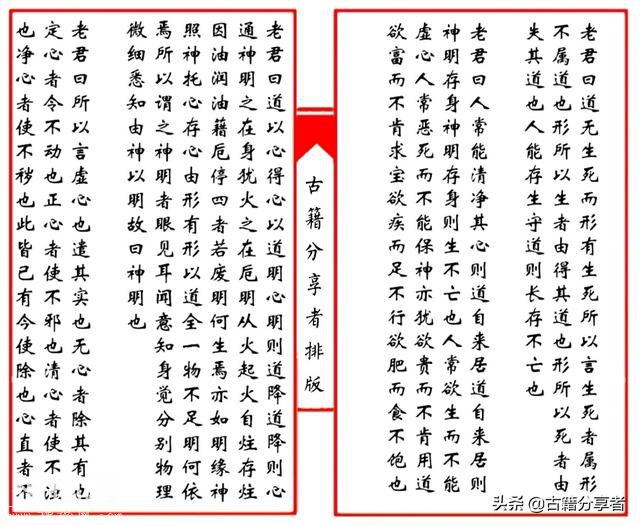 老君曰道无生死而形有生死所以言生死者属形
不属道也形所以生者由得其道也形所以死者由
失其道也人能存生守道则长存不亡也
老君曰人常能清净其心则道自来居道自来居则
神明存身神明存身则生不亡也人常欲生而不能
虚心人常恶死而不能保神亦犹欲贵而不肯用道
欲富而不肯求宝欲疾而足不行欲肥而食不饱也
古籍分享者排版
老君曰道以心得心以道明心明则道降道降则心
通神明之在身犹火之在卮明从火起火自炷存炷
因油润油藉卮停四者若废明何生焉亦如明缘神
照神托心存心由形有形以道全一物不足明何依
焉所以谓之神明者眼见耳闻意知身觉分别物理
微细悉知由神以明故曰神明也
老君曰所以言虚心也遣其实也无心者除其有也
定心者令不动也正心者使不邪也清心者使不浊
也净心者使不秽也此皆已有今使除也心直者不
头条 @古籍分享者